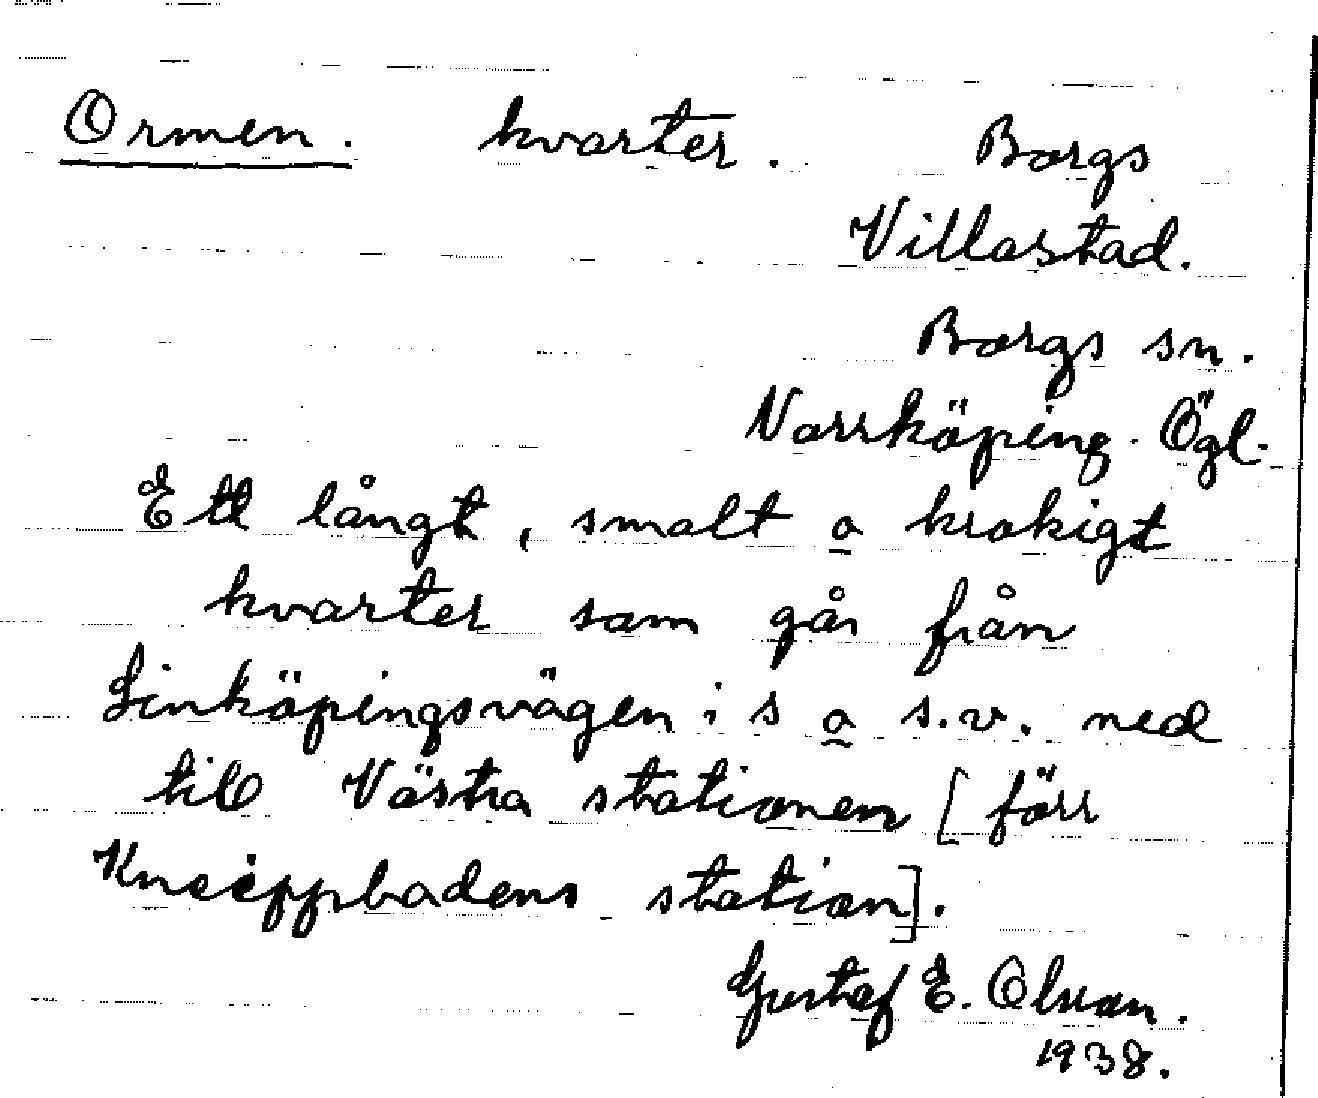 Ormen. kvarter. Borgs
Villastad.
Borgs sn.
Norrköping. Ögl.
Ett långt, smalt o krokigt
kvarter som går från
Linköpingsvägen i s o s.v. ned
till Västra stationen [förr
Kneippbadens station].
Gustaf E. Olson.
1938.